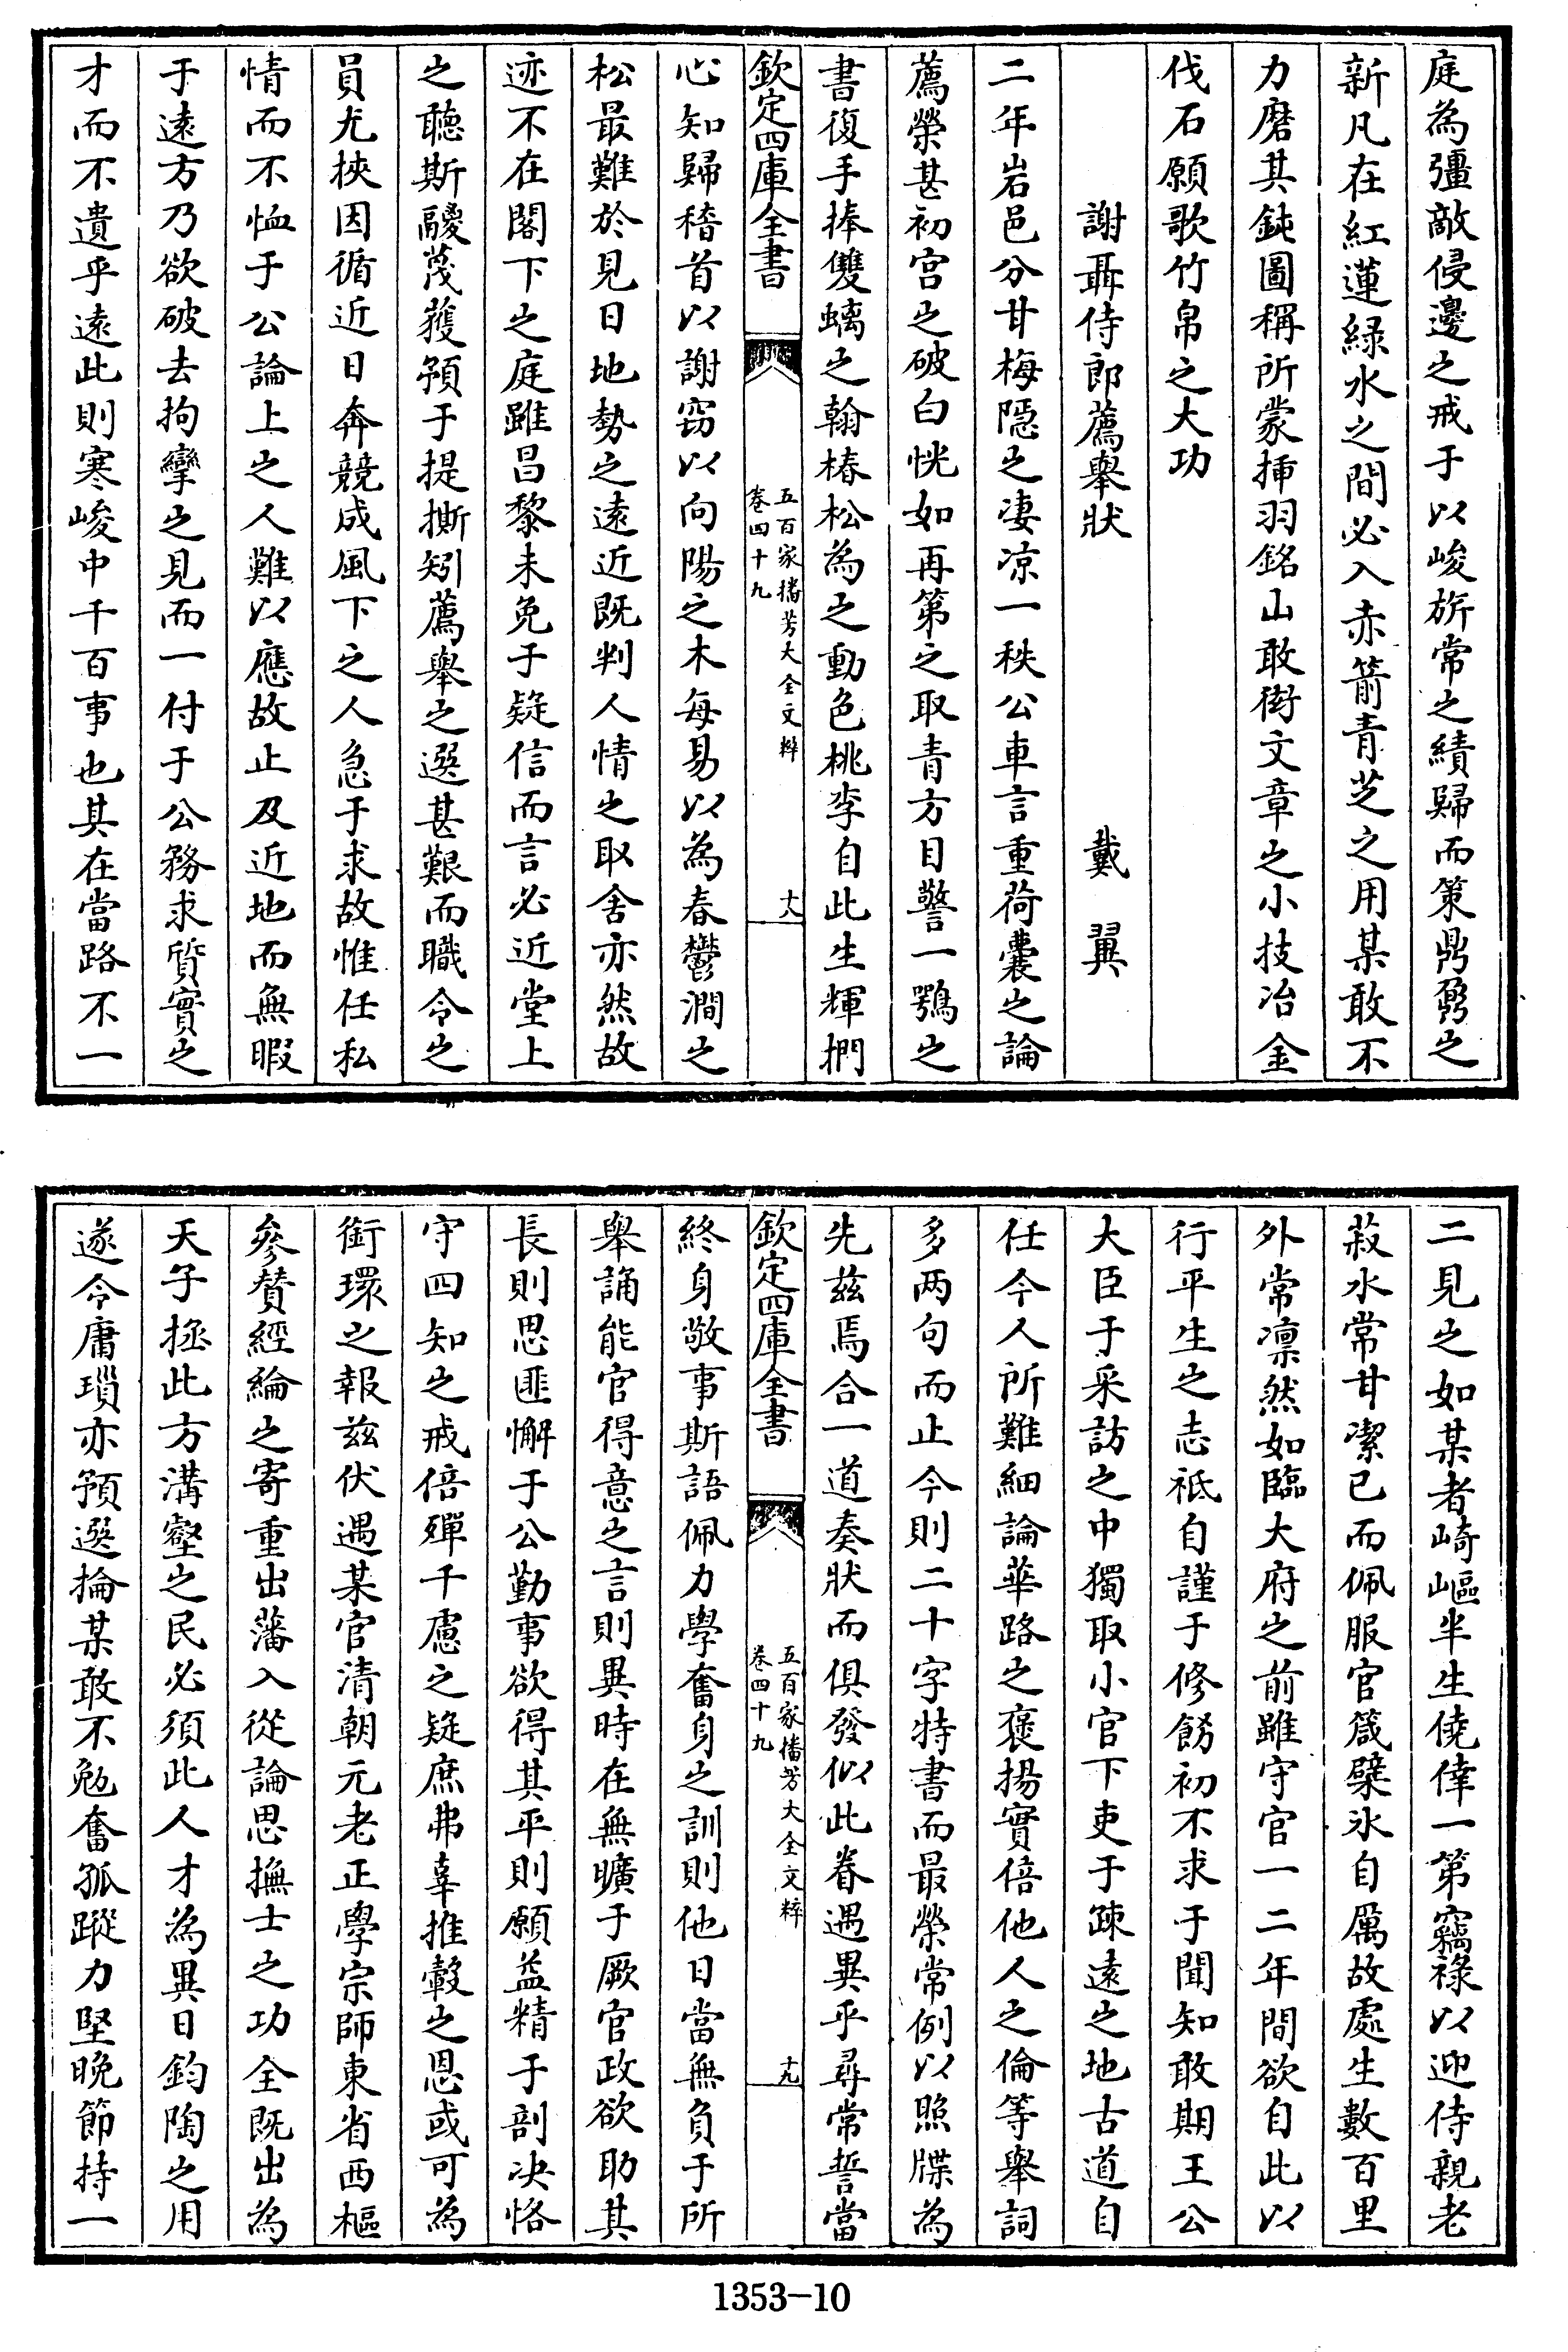 庭為彊敵侵邊之戒于以峻旂常之績歸而策鼎鼐之
新凡在紅蓮緑水之間必入赤箭青芝之用某敢不
力磨其鈍圖稱所蒙揷羽銘山敢衒文章之小技冶金
伐石願歌竹帛之大功
謝聶侍郎薦舉狀　戴翼
二年岩邑分甘梅隠之凄凉一秩公車言重荷囊之論
薦榮甚初宫之破白恍如再第之取青方目警一鶚之
書復手捧雙螭之翰椿松為之動色桃李自此生輝捫
欽定四庫全書
五百家播芳大全文粹
卷四十九
十八
心知歸稽首以謝窃以向陽之木每易以為春鬱澗之
松最難於見日地勢之遠近既判人情之取舍亦然故
迹不在閣下之庭雖昌黎未免于疑信而言必近堂上
之聽斯鬷蔑獲預于提撕矧薦舉之選甚艱而職令之
員尤挾因循近日奔競成風下之人急于求故惟任私
情而不恤于公論上之人難以應故止及近地而無暇
于遠方乃欲破去拘攣之見而一付于公務求質實之
才而不遺乎遠此則寒峻中千百事也其在當路不一
二見之如某者崎嶇半生僥倖一第竊祿以迎侍親老
菽水常甘潔已而佩服官箴櫱氷自厲故處生數百里
外常凛然如臨大府之前雖守官一二年間欲自此以
行平生之志祗自謹于修餝初不求于聞知敢期王公
大臣于采訪之中獨取小官下吏于疎遠之地古道自
任今人所難細論華路之褒揚實倍他人之倫等舉詞
多两句而止今則二十字特書而最榮常例以照牒為
先兹焉合一道奏狀而俱發似此眷遇異乎尋常誓當
欽定四庫全書
五百家播芳大全文粹
卷四十九
十九
終身敬事斯語佩力學奮身之訓則他日當無負于所
舉誦能官得意之言則異時在無曠于厥官政欲助其
長則思匪懈于公勤事欲得其平則願益精于剖决恪
守四知之戒倍殫千慮之疑庶弗辜推轂之恩或可為
銜環之報兹伏遇某官清朝元老正學宗師東省西樞
參賛經綸之寄重出藩入從論思撫士之功全既出為
天子拯此方溝壑之民必須此人才為異日鈞陶之用
遂令庸瑣亦預選掄某敢不勉奮孤蹤力堅晚節持一
1353-10